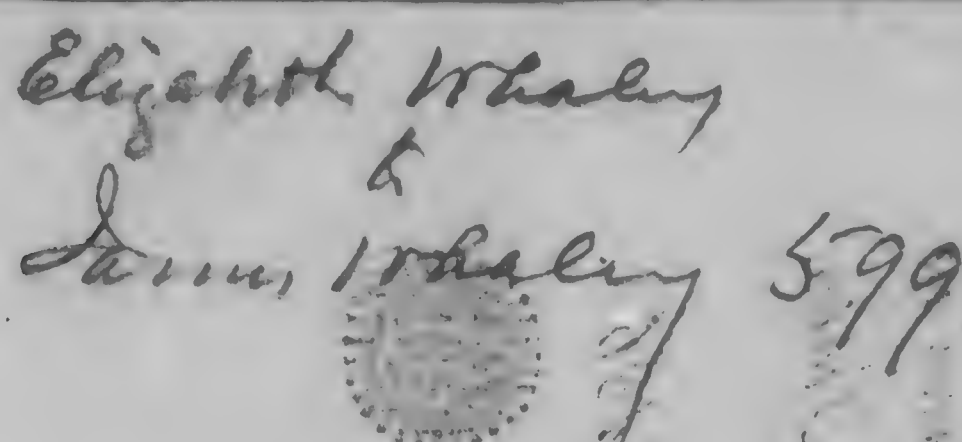 Elizabeth Whaley
&
James Whaley 599